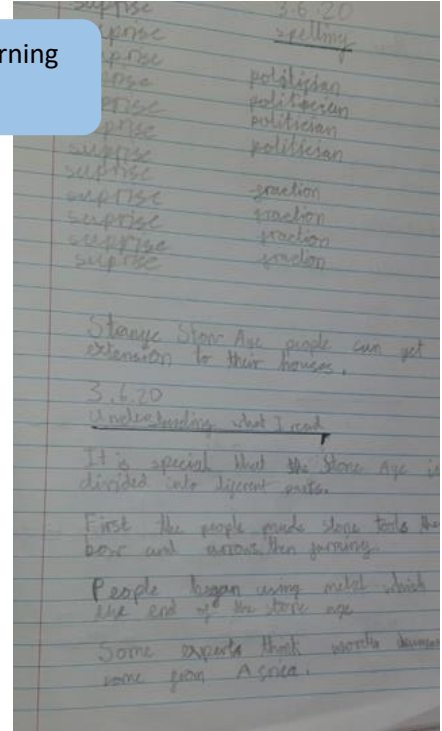 rning
suprise 3.6.20
suprise spelling
suprise
suprise
suprise
suprise
suprise
suprise
suprise
suprise
suprise
suprise
politician
fraction
fraction
fraction
fraction
Stange Stone Age people can get
extension to their houses.
3.6.20
Understanding what I read
It is special that the Stone Age is
divided into diferent parts.
First the people made stone tools the
bow and arrows then farming.
People began using metal which
the end of the stone age
Some experts think worlds
come from Africa.